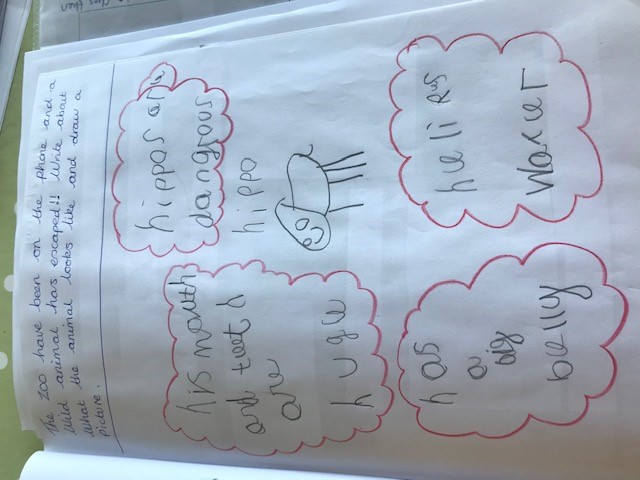 The zoo have been on the phone and a
wild animal has escaped!! Write about
what the animal looks like and draw a
picture.
hippos are
dangrous
hippo
his mouth
and teeth
are
huge
he lives
Warter
has
a
big
belly